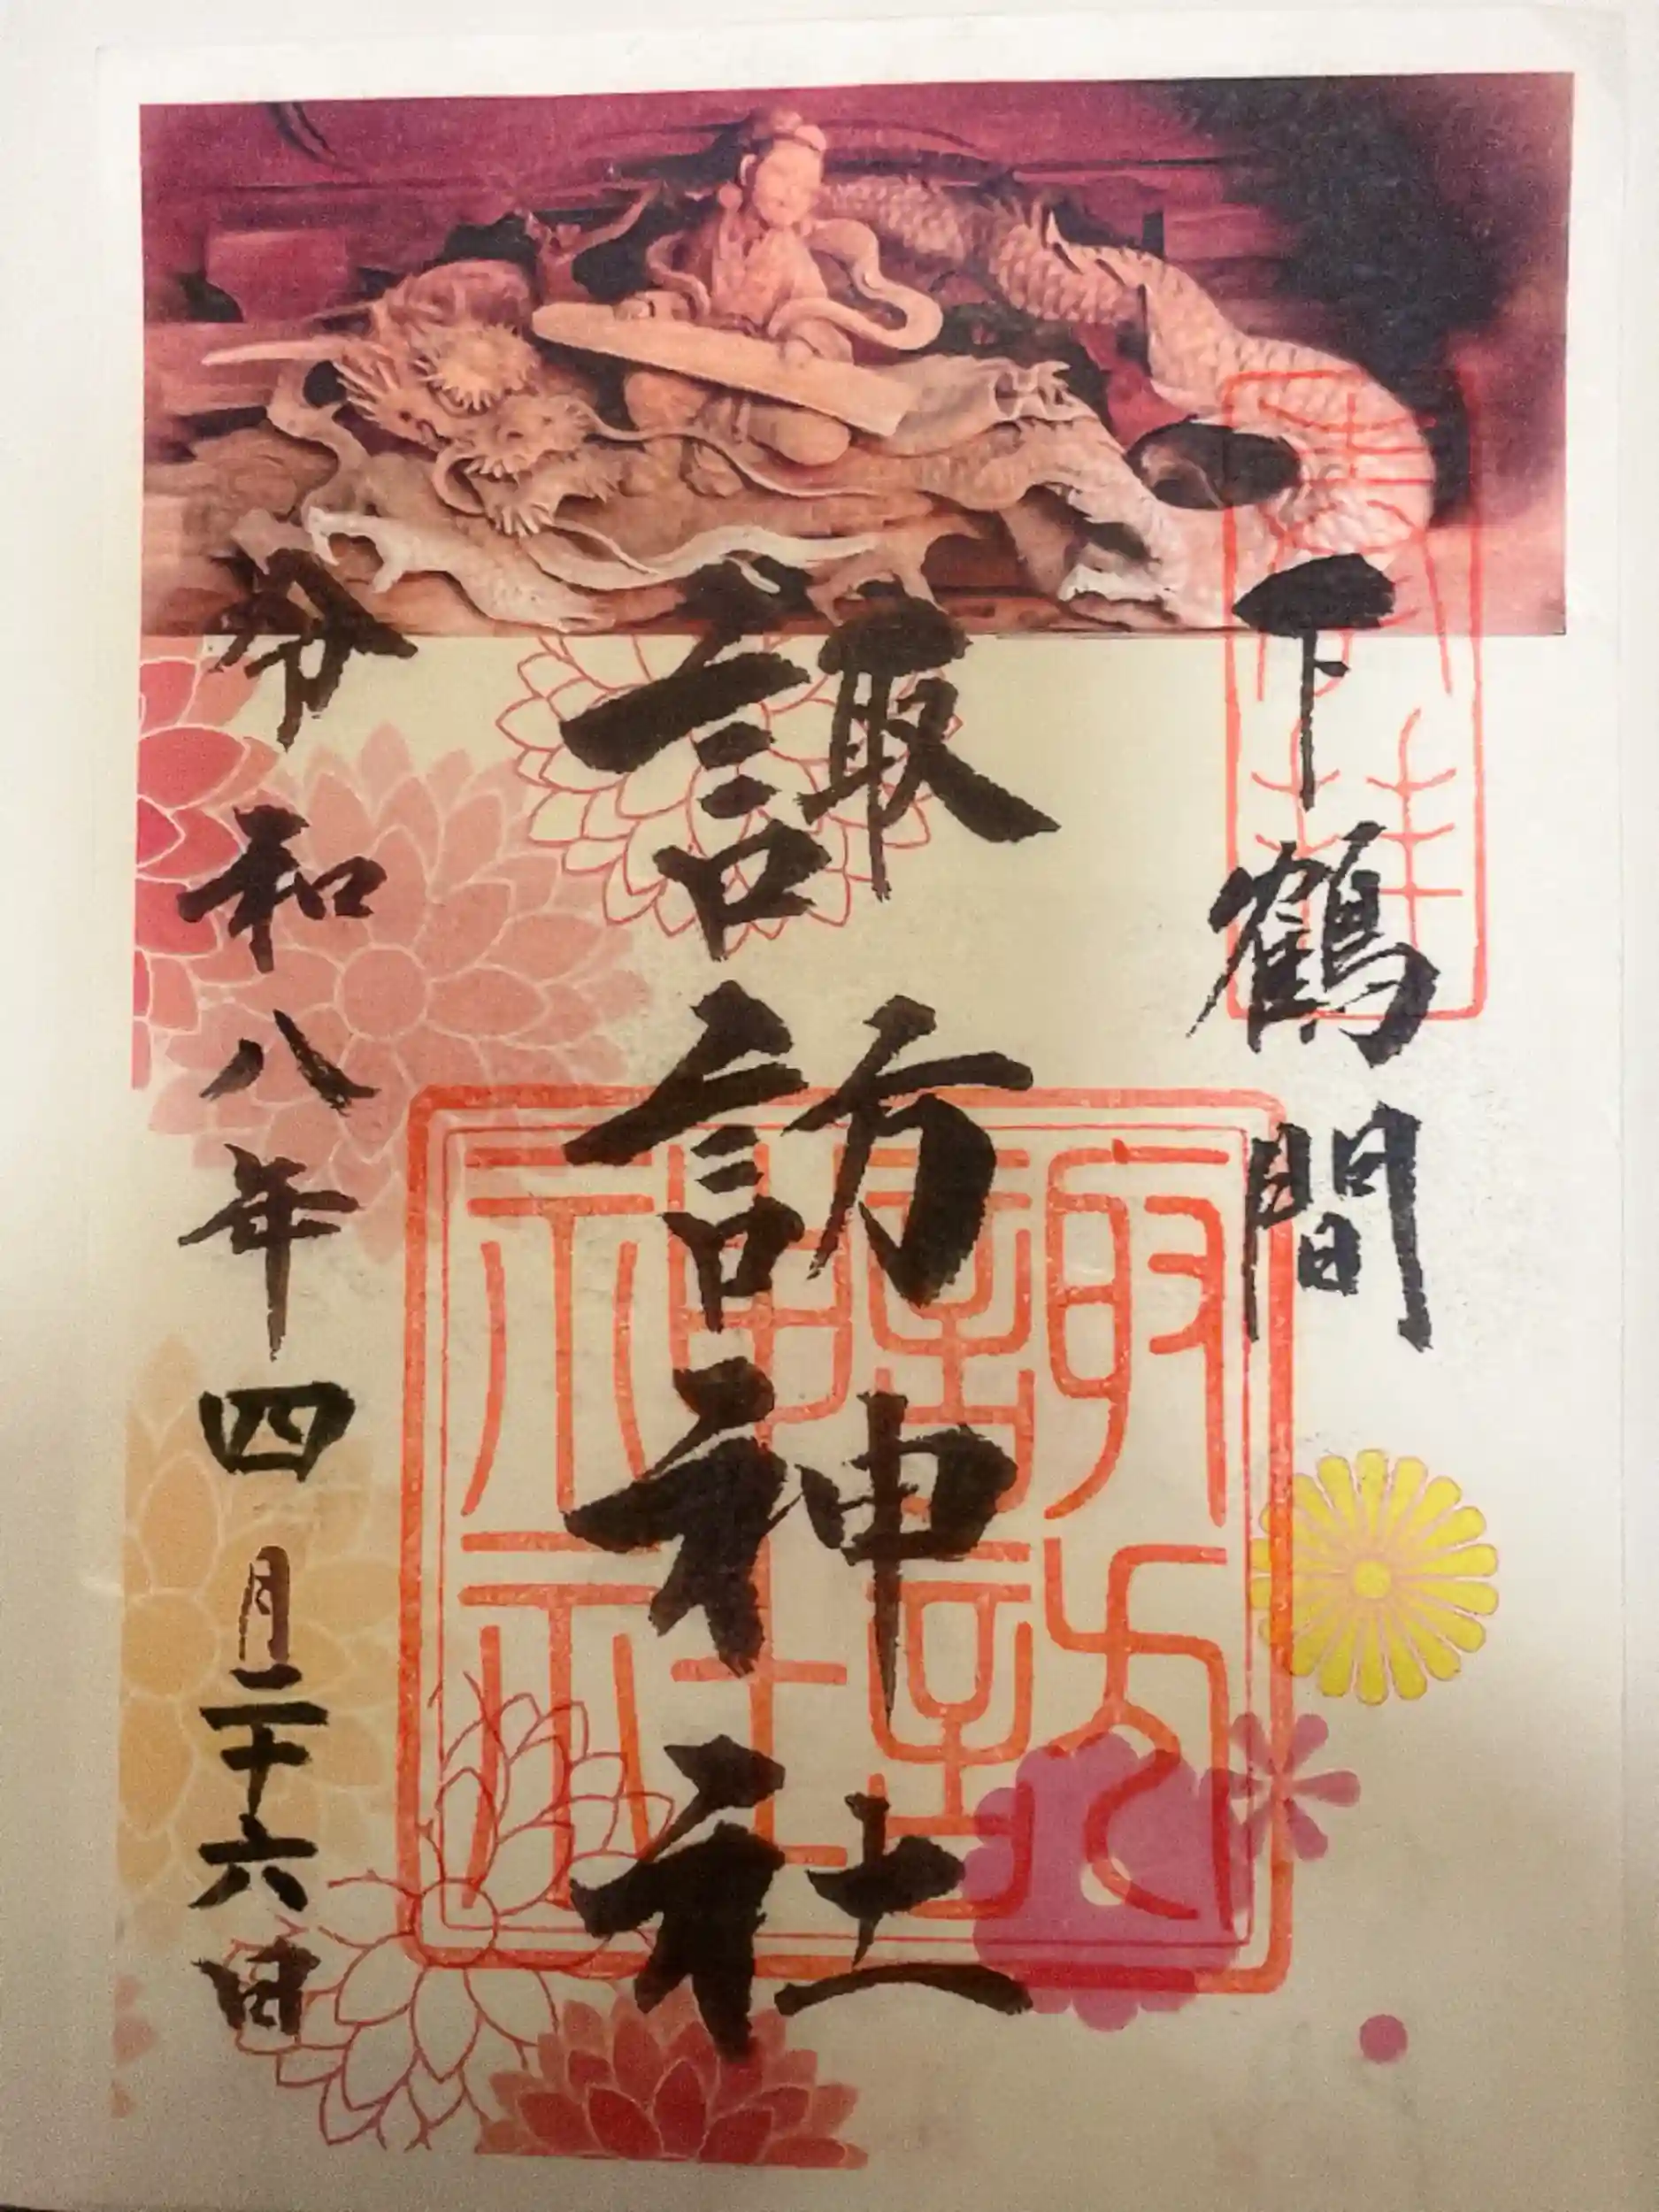 下鶴間
諏訪神社
令和八年四月二十六日
諏訪
神社